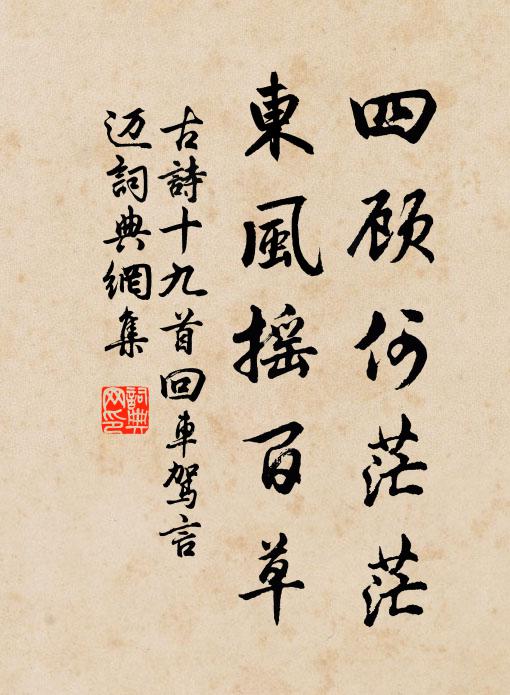 四顾何茫茫
東風摇百草
古詩十九首回車駕言
迈詞典網集
詞典网印